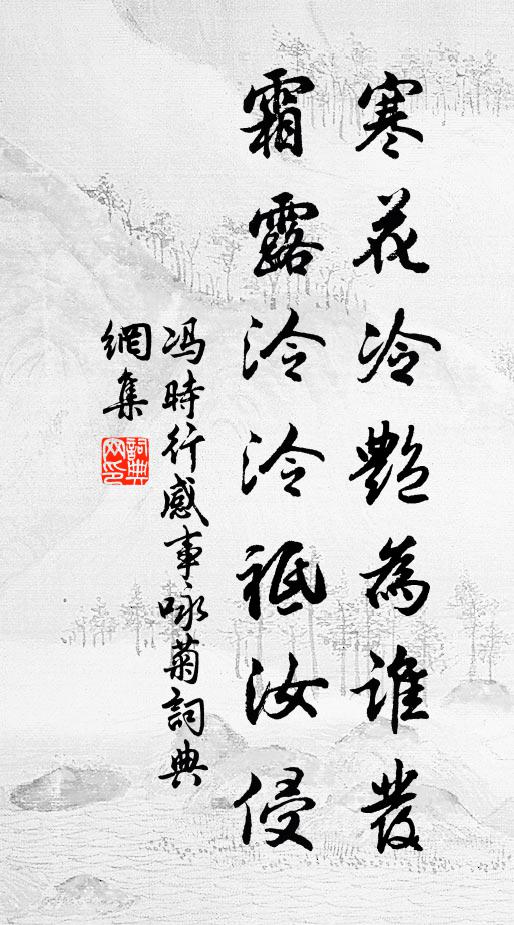 寒花冷艷為誰發
霜露泠泠祗汝侵
冯時行感事咏菊詞典
網集
詞典
网印